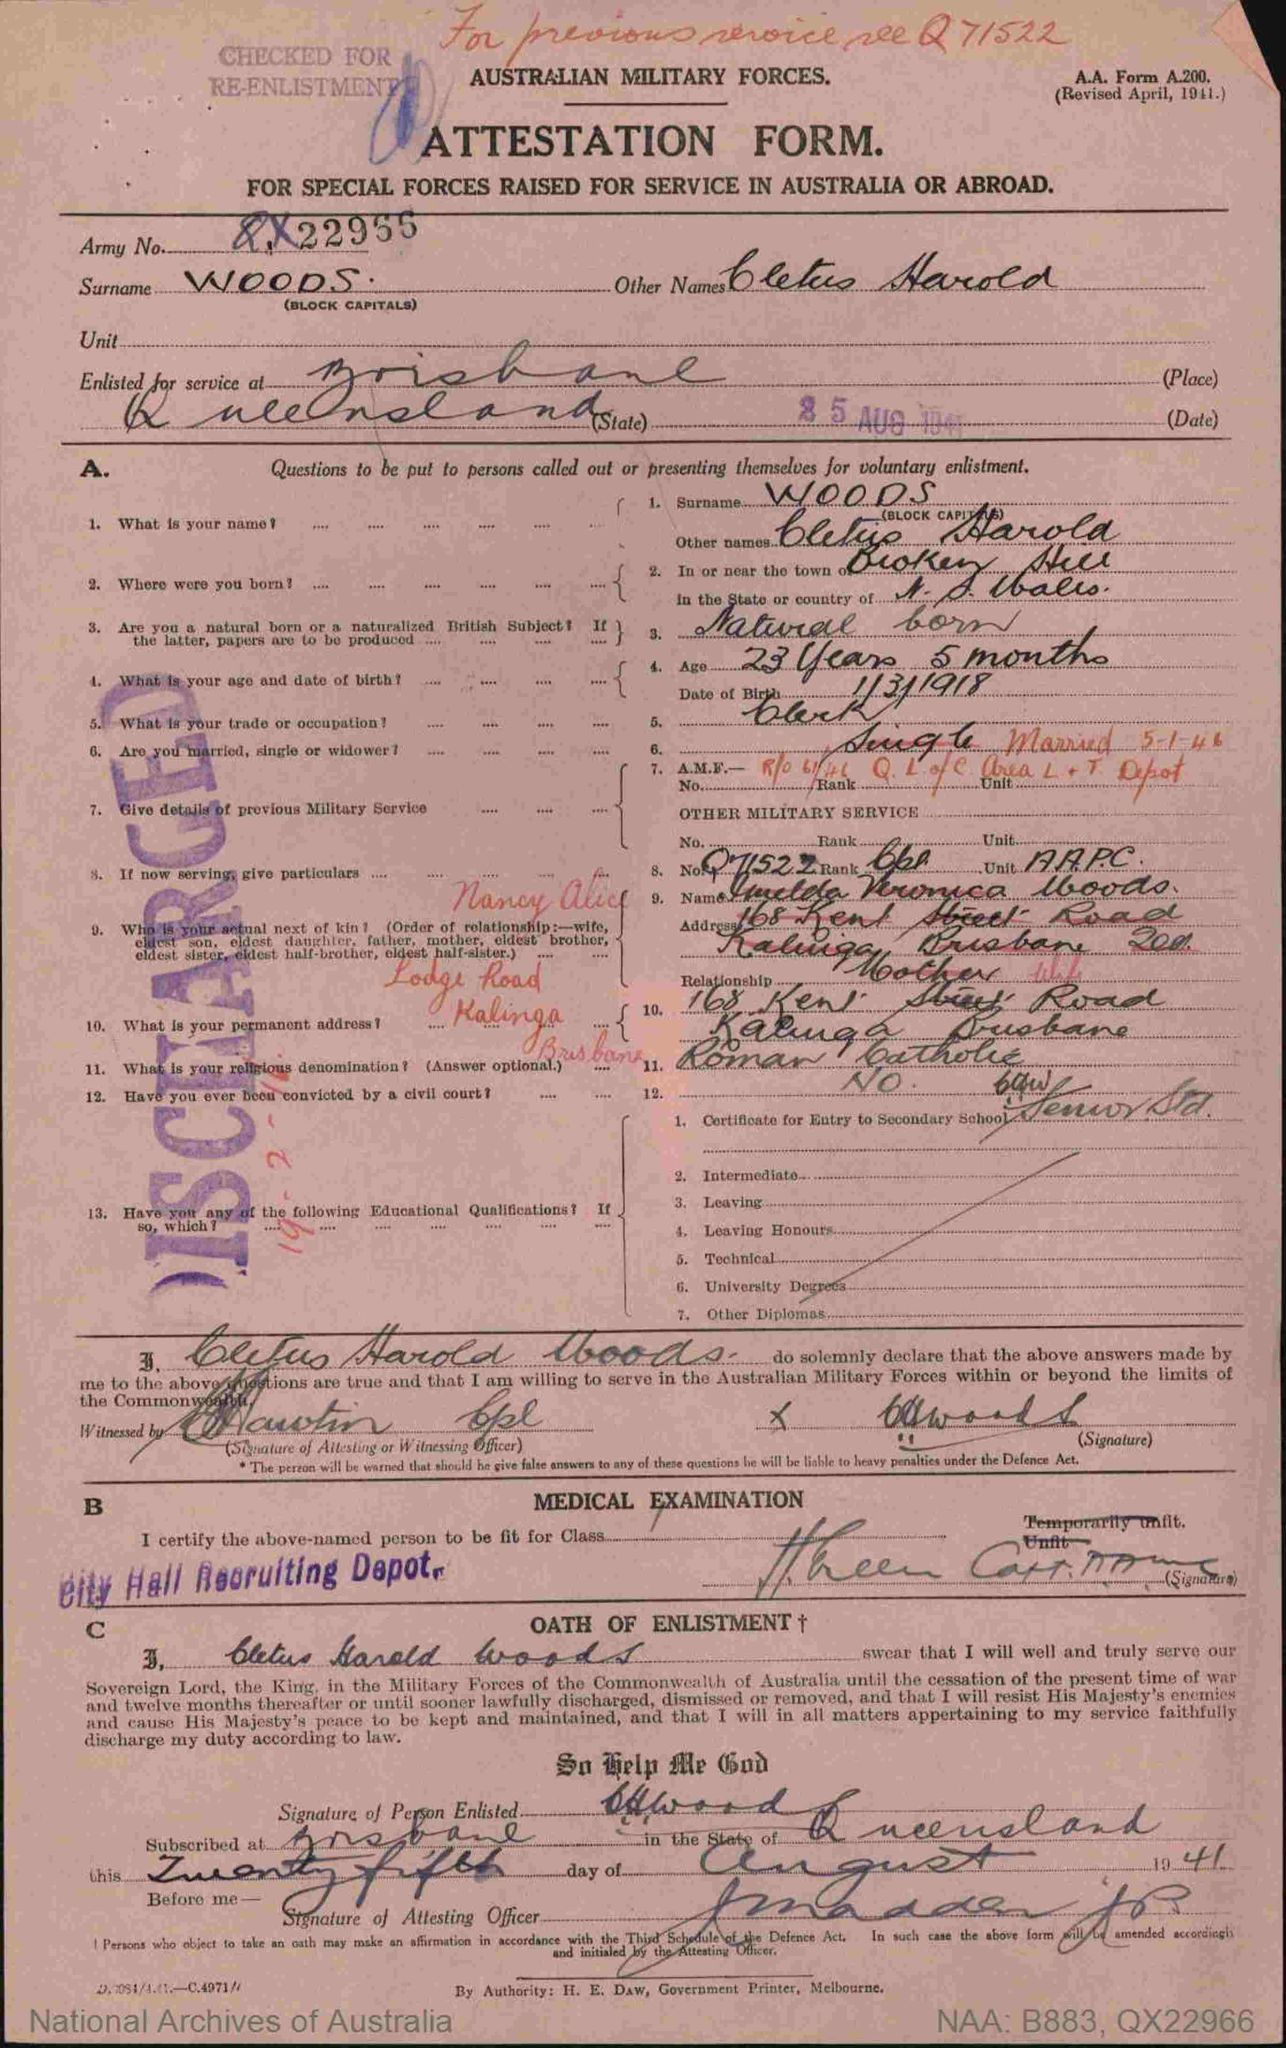 For previous service see Q71522
CHECKED FOR
RE-ENLISTMENT
AUSTRALIAN MILITARY FORCES.
A.A. Form A.200.
(Revised April, 1941.)
ATTESTATION FORM.
FOR SPECIAL FORCES RAISED FOR SERVICE IN AUSTRALIA OR ABROAD.
Army No. QX22966
Surname WOODS. Other Names Cletus Harold
(BLOCK CAPITALS)
Unit
Enlisted for service at Brisbane (Place)
Queensland (State) 25 AUG 1941 (Date)
A. Questions to be put to persons called out or presenting themselves for voluntary enlistment.
1. What is your name? .... .... .... .... .... 1. Surname WOODS
(BLOCK CAPITALS)
Other names Cletus Harold
2. Where were you born? .... .... .... .... .... 2. In or near the town of Broken Hill
in the State or country of N. S. Wales.
3. Are you a natural born or a naturalized British Subject? If
the latter, papers are to be produced .... .... .... 3. Natural born
4. What is your age and date of birth? .... .... .... .... 4. Age 23 Years 5 months
Date of Birth 1/3/1918
5. What is your trade or occupation? .... .... .... 5. Clerk
6. Are you married, single or widower? .... .... .... 6. Single Married 5-1-46
7. Give details of previous Military Service .... .... 7. A.M.F.— R/O 61/46 Q. L of C Area L + T Depot
No. Rank Unit
OTHER MILITARY SERVICE
No. Rank Unit
8. If now serving, give particulars .... .... .... .... 8. No. Q71522 Rank Cpl. Unit A.A.P.C.
9. Who is your actual next of kin? (Order of relationship:—wife,
eldest son, eldest daughter, father, mother, eldest brother,
eldest sister, eldest half-brother, eldest half-sister.) .... ....
Nancy Alice
Lodge Road
Kalinga
Brisbane
9. Name Imelda Veronica Woods.
Address 168 Kent Street Road
Kalinga Brisbane
Relationship Mother Wife
10. What is your permanent address? .... .... .... 10. 168 Kent Street Road
Kalinga Brisbane
11. What is your religious denomination? (Answer optional.) .... 11. Roman Catholic
12. Have you ever been convicted by a civil court? .... .... 12. NO.
13. Have you any of the following Educational Qualifications? If
so, which? .... .... .... .... .... ....
1. Certificate for Entry to Secondary School CHW Senior Std.
2. Intermediate
3. Leaving
4. Leaving Honours
5. Technical
6. University Degrees
7. Other Diplomas
DISCHARGED
I, Cletus Harold Woods. do solemnly declare that the above answers made by
me to the above questions are true and that I am willing to serve in the Australian Military Forces within or beyond the limits of
the Commonwealth.
Witnessed by Hawtin Cpl X CHWoods
(Signature of Attesting or Witnessing Officer) (Signature)
* The person will be warned that should he give false answers to any of these questions he will be liable to heavy penalties under the Defence Act.
B MEDICAL EXAMINATION
I certify the above-named person to be fit for Class Temporarily unfit.
Unfit
City Hall Recruiting Depot. H. Green Capt. AAMC (Signature)
C OATH OF ENLISTMENT †
I, Cletus Harold Woods swear that I will well and truly serve our
Sovereign Lord, the King, in the Military Forces of the Commonwealth of Australia until the cessation of the present time of war
and twelve months thereafter or until sooner lawfully discharged, dismissed or removed, and that I will resist His Majesty's enemies
and cause His Majesty's peace to be kept and maintained, and that I will in all matters appertaining to my service faithfully
discharge my duty according to law.
So Help Me God
Signature of Person Enlisted CHWoods
Subscribed at Brisbane in the State of Queensland
this Twenty fifth day of August 1941.
Before me—
Signature of Attesting Officer J Madden JP
† Persons who object to take an oath may make an affirmation in accordance with the Third Schedule of the Defence Act. In such case the above form will be amended accordingly
and initialed by the Attesting Officer.
By Authority: H. E. DAW, Government Printer, Melbourne.
National Archives of Australia NAA: B883, QX22966